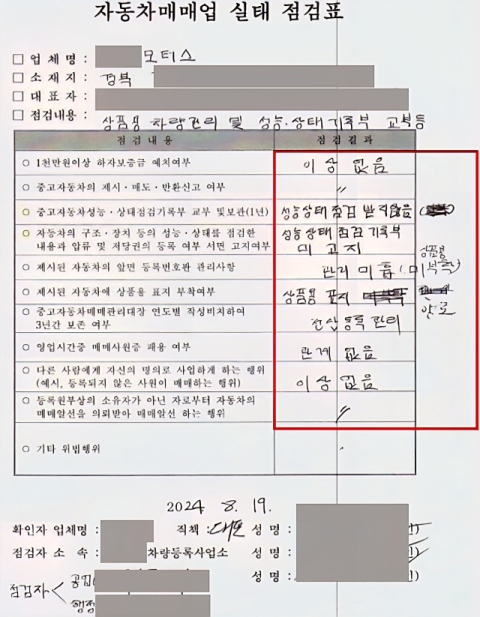 자동차매매업 실태 점검표
□ 업 체 명 : 모터스
□ 소 재 지 : 경북
□ 대 표 자 :
□ 점검내용 : 상품용 차량관리 및 성능·상태기록부 교부등
점 검 내 용 점 검 결 과
○ 1천만원이상 하자보증금 예치여부 이상 없음
○ 중고자동차의 제시·매도·반환신고 여부 〃
○ 중고자동차성능·상태점검기록부 교부 및보관(1년) 성능상태 점검 받지않음
○ 자동차의 구조·장치 등의 성능·상태를 점검한 성능상태 점검 기록부
내용과 압류 및 저당권의 등록 여부 서면 고지여부 미고지
○ 제시된 자동차의 앞면 등록번호판 관리사항 관리 미흡 (미부착)
○ 제시된 자동차에 상품용 표지 부착여부 상품용 표지
상품용
○ 중고자동차매매관리대장 연도별 작성비치하여
3년간 보존 여부 전산등록 관리
○ 영업시간중 매매사원증 패용 여부 관계 없음
○ 다른 사람에게 자신의 명의로 사업하게 하는 행위
(예시, 등록되지 않은 사원이 매매하는 행위) 이상 없음
○ 등록원부상의 소유자가 아닌 자로부터 자동차의
매매알선을 의뢰받아 매매알선 하는 행위 〃
○ 기타 위법행위
2024 8. 19.
확인자 업체명 : 직책 : 대표 성 명 :
점검자 소 속 : 차량등록사업소 성 명 :
성 명 :
점검자